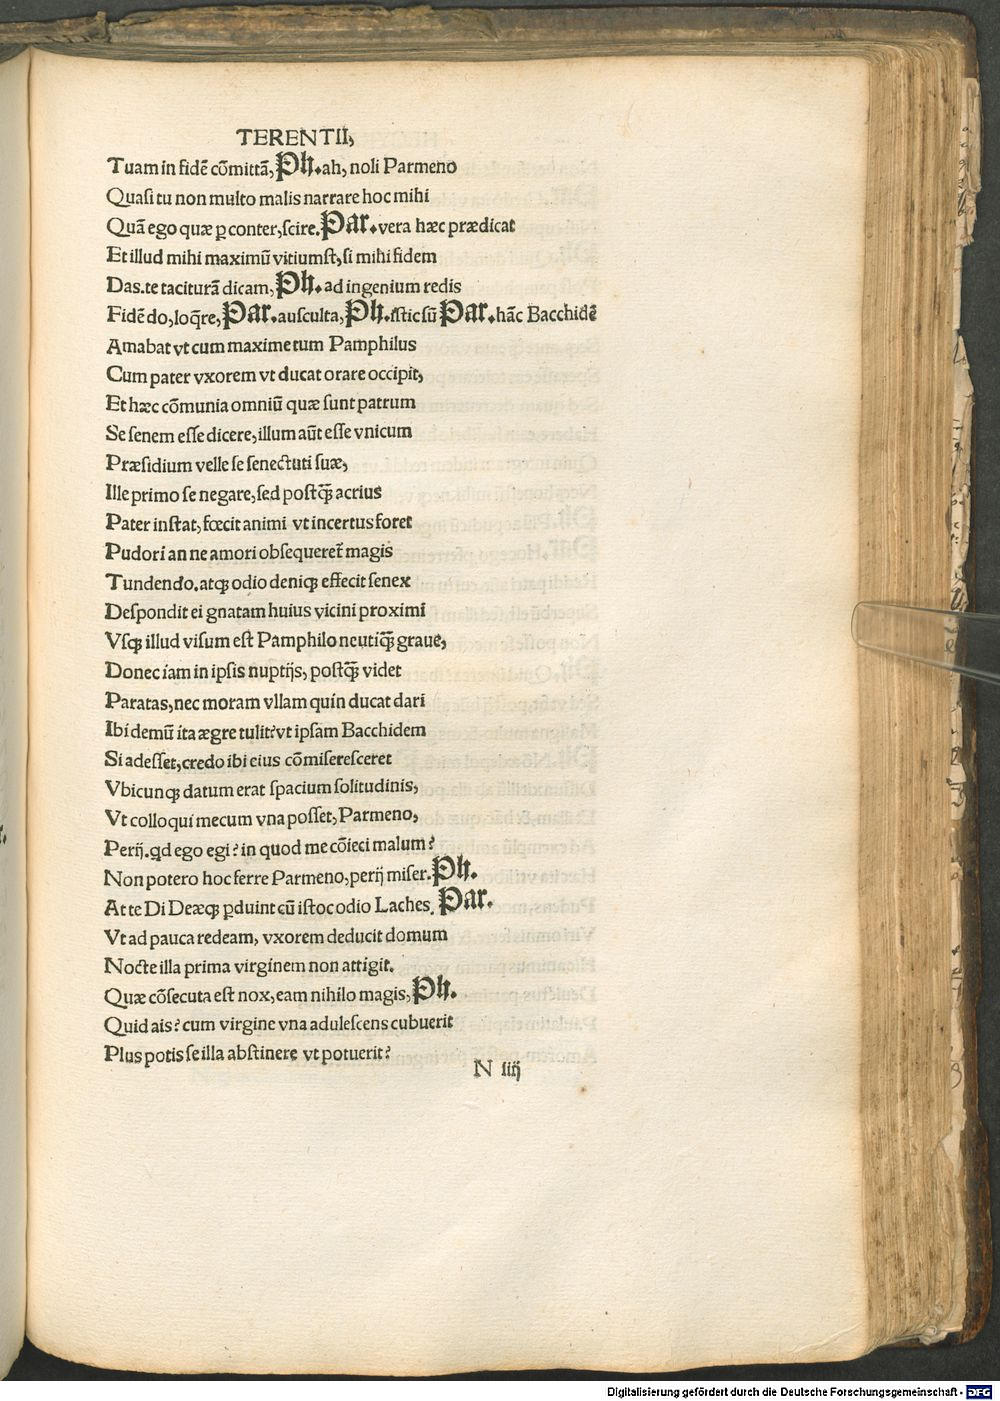 TERENTII,
Tuam in fidē cōmittā, Ph. ah, noli Parmeno
Quasi tu non multo malis narrare hoc mihi
Quā ego quæ ꝑ conter, scire. Par. vera hæc prædicat
Et illud mihi maximū vitiumst, si mihi fidem
Das. te taciturā dicam, Ph. ad ingenium redis
Fidē do, loq̄re, Par. ausculta, Ph. istic sū Par. hāc Bacchidē
Amabat vt cum maxime tum Pamphilus
Cum pater vxorem vt ducat orare occipit,
Et hæc cōmunia omniū quæ sunt patrum
Se senem esse dicere, illum aūt esse vnicum
Præsidium velle se senectuti suæ,
Ille primo se negare, sed postq̄ acrius
Pater instat, fœcit animi vt incertus foret
Pudori an ne amori obsequeret᷑ magis
Tundendo. atqꝫ odio deniqꝫ effecit senex
Despondit ei gnatam huius vicini proximi
Vsqꝫ illud visum est Pamphilo neutiq̄ graue,
Donec iam in ipsis nuptijs, postq̄ videt
Paratas, nec moram vllam quin ducat dari
Ibi demū ita ægre tulit: vt ipsam Bacchidem
Si adesset, credo ibi eius cōmiseresceret
Vbicunqꝫ datum erat spacium solitudinis,
Vt colloqui mecum vna posset, Parmeno,
Perij. qd ego egi? in quod me cōieci malum?
Non potero hoc ferre Parmeno, perij miser. Ph.
At te Di Deæqꝫ ꝑduint cū istoc odio Laches. Par.
Vt ad pauca redeam, vxorem deducit domum
Nocte illa prima virginem non attigit.
Quæ cōsecuta est nox, eam nihilo magis, Ph.
Quid ais? cum virgine vna adulescens cubuerit
Plus potis se illa abstinere vt potuerit?
N iiij
Digitalisierung gefördert durch die Deutsche Forschungsgemeinschaft - DFG